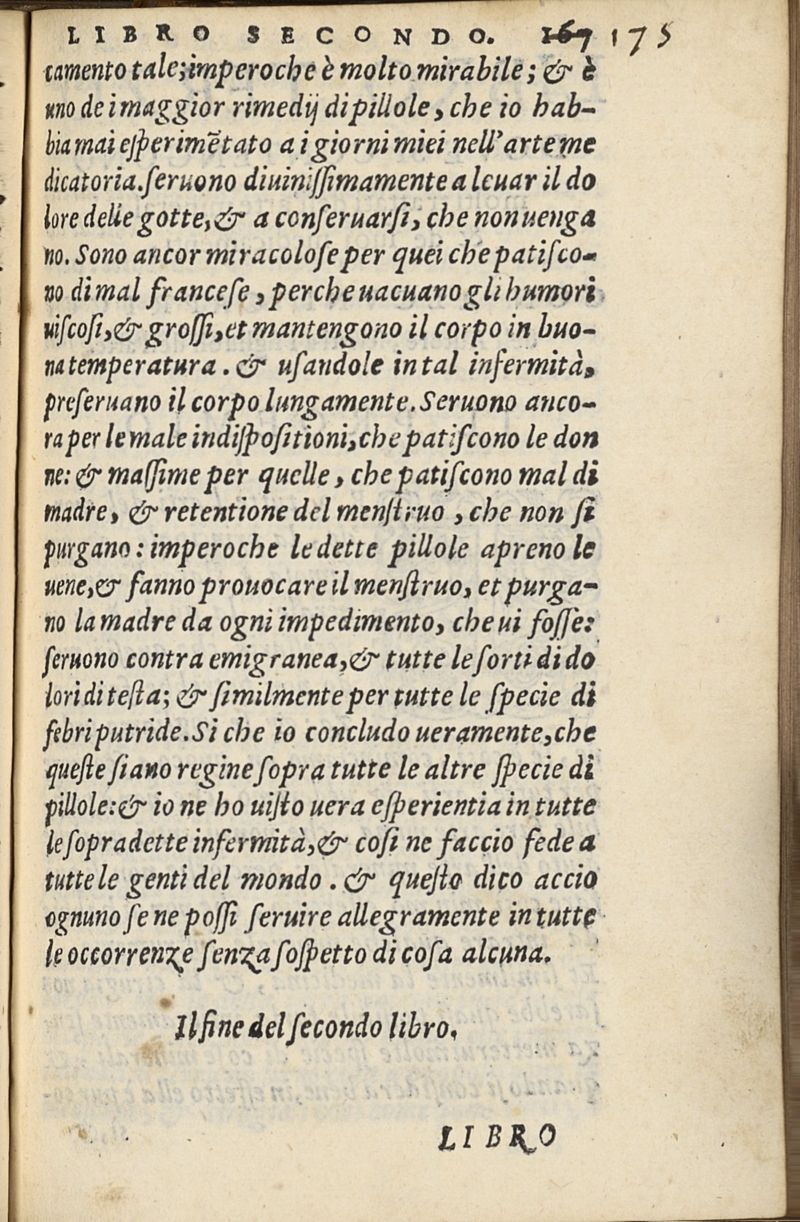 LIBRO SECONDO. 167 175
camento tale; imperoche è molto mirabile; & è
uno de i maggior rimedij di pillole, che io hab-
bia mai eſperimẽtato a i giorni miei nell'arte me
dicatoria. ſeruono diuiniſſimamente a leuar il do
lore delle gotte, & a conſeruarſi, che non uenga
no. Sono ancor miracoloſe per quei che patiſco-
no di mal franceſe, perche uacuano gli humori
uiſcoſi, & groſſi, et mantengono il corpo in buo-
na temperatura. & uſandole in tal infermità,
preſeruano il corpo lungamente. Seruono anco-
ra per le male indiſpoſitioni, che patiſcono le don
ne: & maſſime per quelle, che patiſcono mal di
madre, & retentione del menſtruo, che non ſi
purgano: imperoche le dette pillole apreno le
uene, & fanno prouocare il menſtruo, et purga-
no la madre da ogni impedimento, che ui foſſe:
ſeruono contra emigranea, & tutte le ſorti di do
lori di teſta; & ſimilmente per tutte le ſpecie di
febri putride. Si che io concludo ueramente, che
queſte ſiano regine ſopra tutte le altre ſpecie di
pillole: & io ne ho uiſto uera eſperientia in tutte
le ſopradette infermità, & coſi ne faccio fede a
tutte le genti del mondo. & queſto dico accio
ognuno ſe ne poſſi ſeruire allegramente in tutte
le occorrenze ſenza ſoſpetto di coſa alcuna.
Il fine del ſecondo libro.
LIBRO